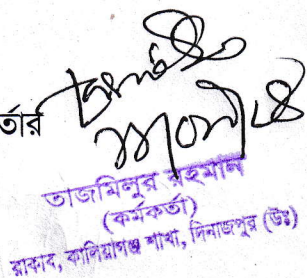 র্তার
তাজমিলুর রহমান
(কর্মকর্তা)
রাকাব, কালিয়াগঞ্জ শাখা, দিনাজপুর (উঃ)